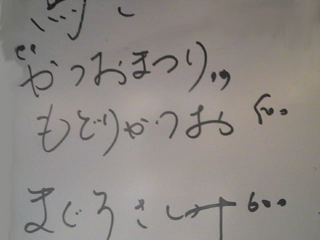 "かつおまつり"
もどりかつお 500
まぐろさしみ 600